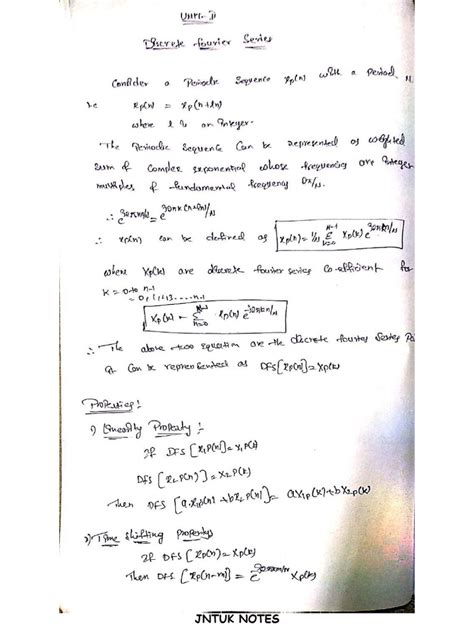 UNIT-II
Discrete Fourier Series
Consider a Periodic Sequence xp(n) with a Period N
i.e xp(n) = xp(n+lN)
where l is an Integer.
The Periodic sequence can be represented as weighted
sum of complex exponential whose frequencies are Integer
multiples of fundamental frequency 2π/N
∴ xp(n) can be defined as xp(n) = 1/N Σ Xp(k) e^j2πkn/N
where Xp(k) are discrete fourier series co-efficient for
k = 0 to N-1
= 0,1,2,3.....N-1
Xp(k) = Σ xp(n) e^-j2πkn/N
∴ The above two equation are the discrete fourier series
It can be represented as DFS[xp(n)] = Xp(k)
Properties:
1) Linearity Property:-
If DFS[x1p(n)] = X1p(k)
DFS[x2p(n)] = X2p(k)
Then DFS[a x1p(n) + b x2p(n)] = aX1p(k) + bX2p(k)
2) Time shifting Property
If DFS[xp(n)] = Xp(k)
Then DFS[xp(n-m)] = Xp(k)
JNTUK NOTES